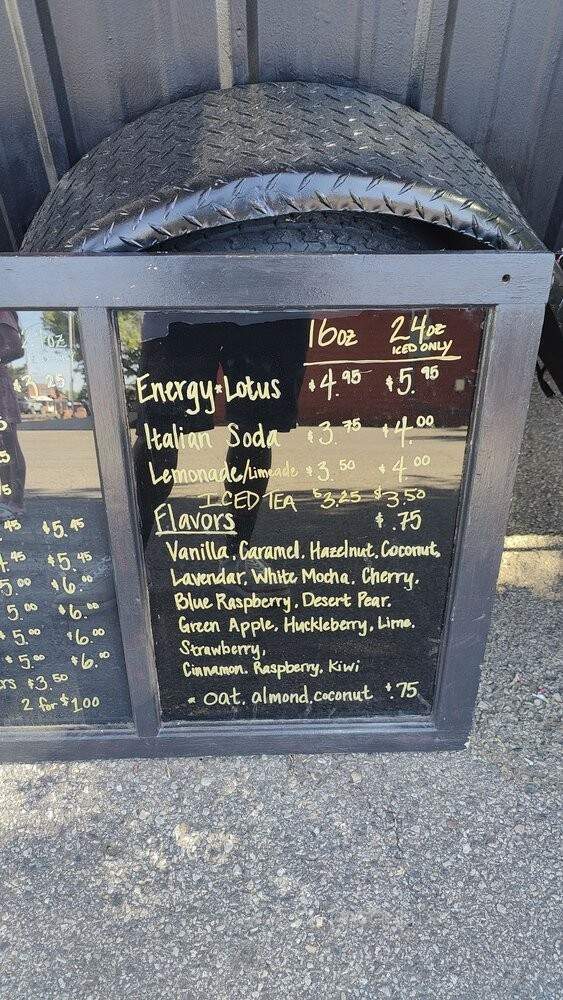 16oz 24oz
ICED ONLY
Energy*Lotus $4.95 $5.95
Italian Soda $3.75 $4.00
Lemonade/Limeade $3.50 $4.00
ICED TEA $3.25 $3.50
Flavors $.75
Vanilla, Caramel, Hazelnut, Coconut,
Lavendar, White Mocha, Cherry,
Blue Raspberry, Desert Pear,
Green Apple, Huckleberry, Lime,
Strawberry,
Cinnamon, Raspberry, Kiwi
* oat, almond, coconut $.75
oz
$5.45
$5.45
5.00 $6.00
5.00 $6.00
$5.00 $6.00
$5.00 $6.00
$3.50
2 for $1.00